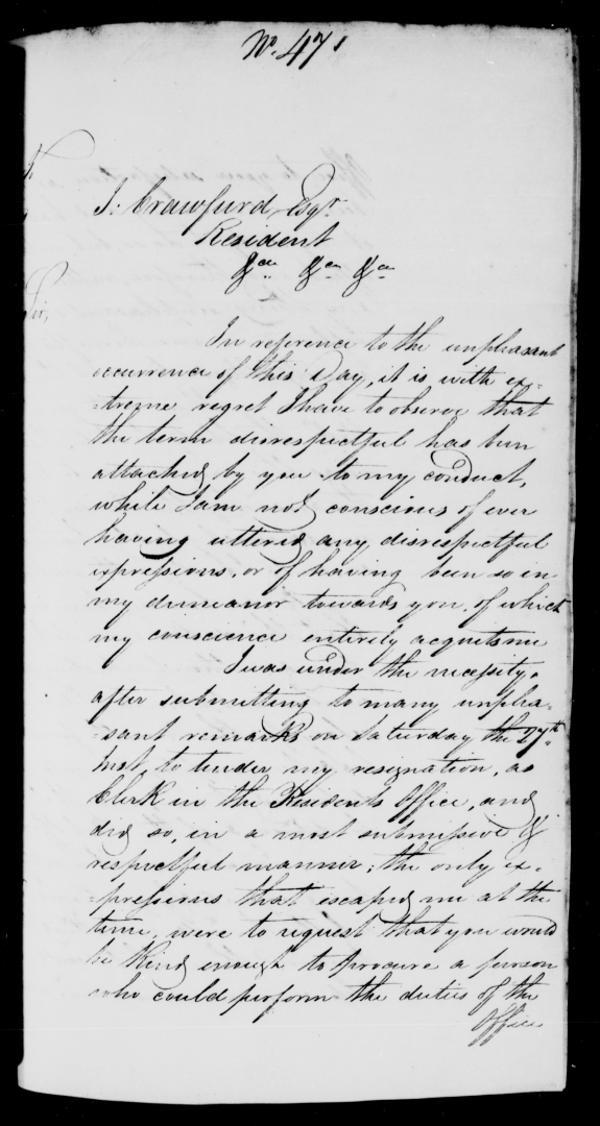 No. 471
J. Crawfurd Esqr.
Resident
&ca &ca &ca
Sir,
In reference to the unpleasant
occurrence of this day, it is with ex-
-treme regret I have to observe that
the term disrespectful has been
attached by you to my conduct,
while I am not conscious of ever
having uttered any disrespectful
expressions, or of having been so in
my demeanor towards you, of which
my conscience entirely acquits me
I was under the necessity,
after submitting to many unplea-
-sant remarks on Saturday the 27th
Inst. to tender my resignation, as
Clerk in the Residents Office, and
did so, in a most submissive &
respectful manner; the only ex-
-pressions that escaped me at the
time, were to request that you would
be kind enough to procure a person
who could perform the duties of the
Office